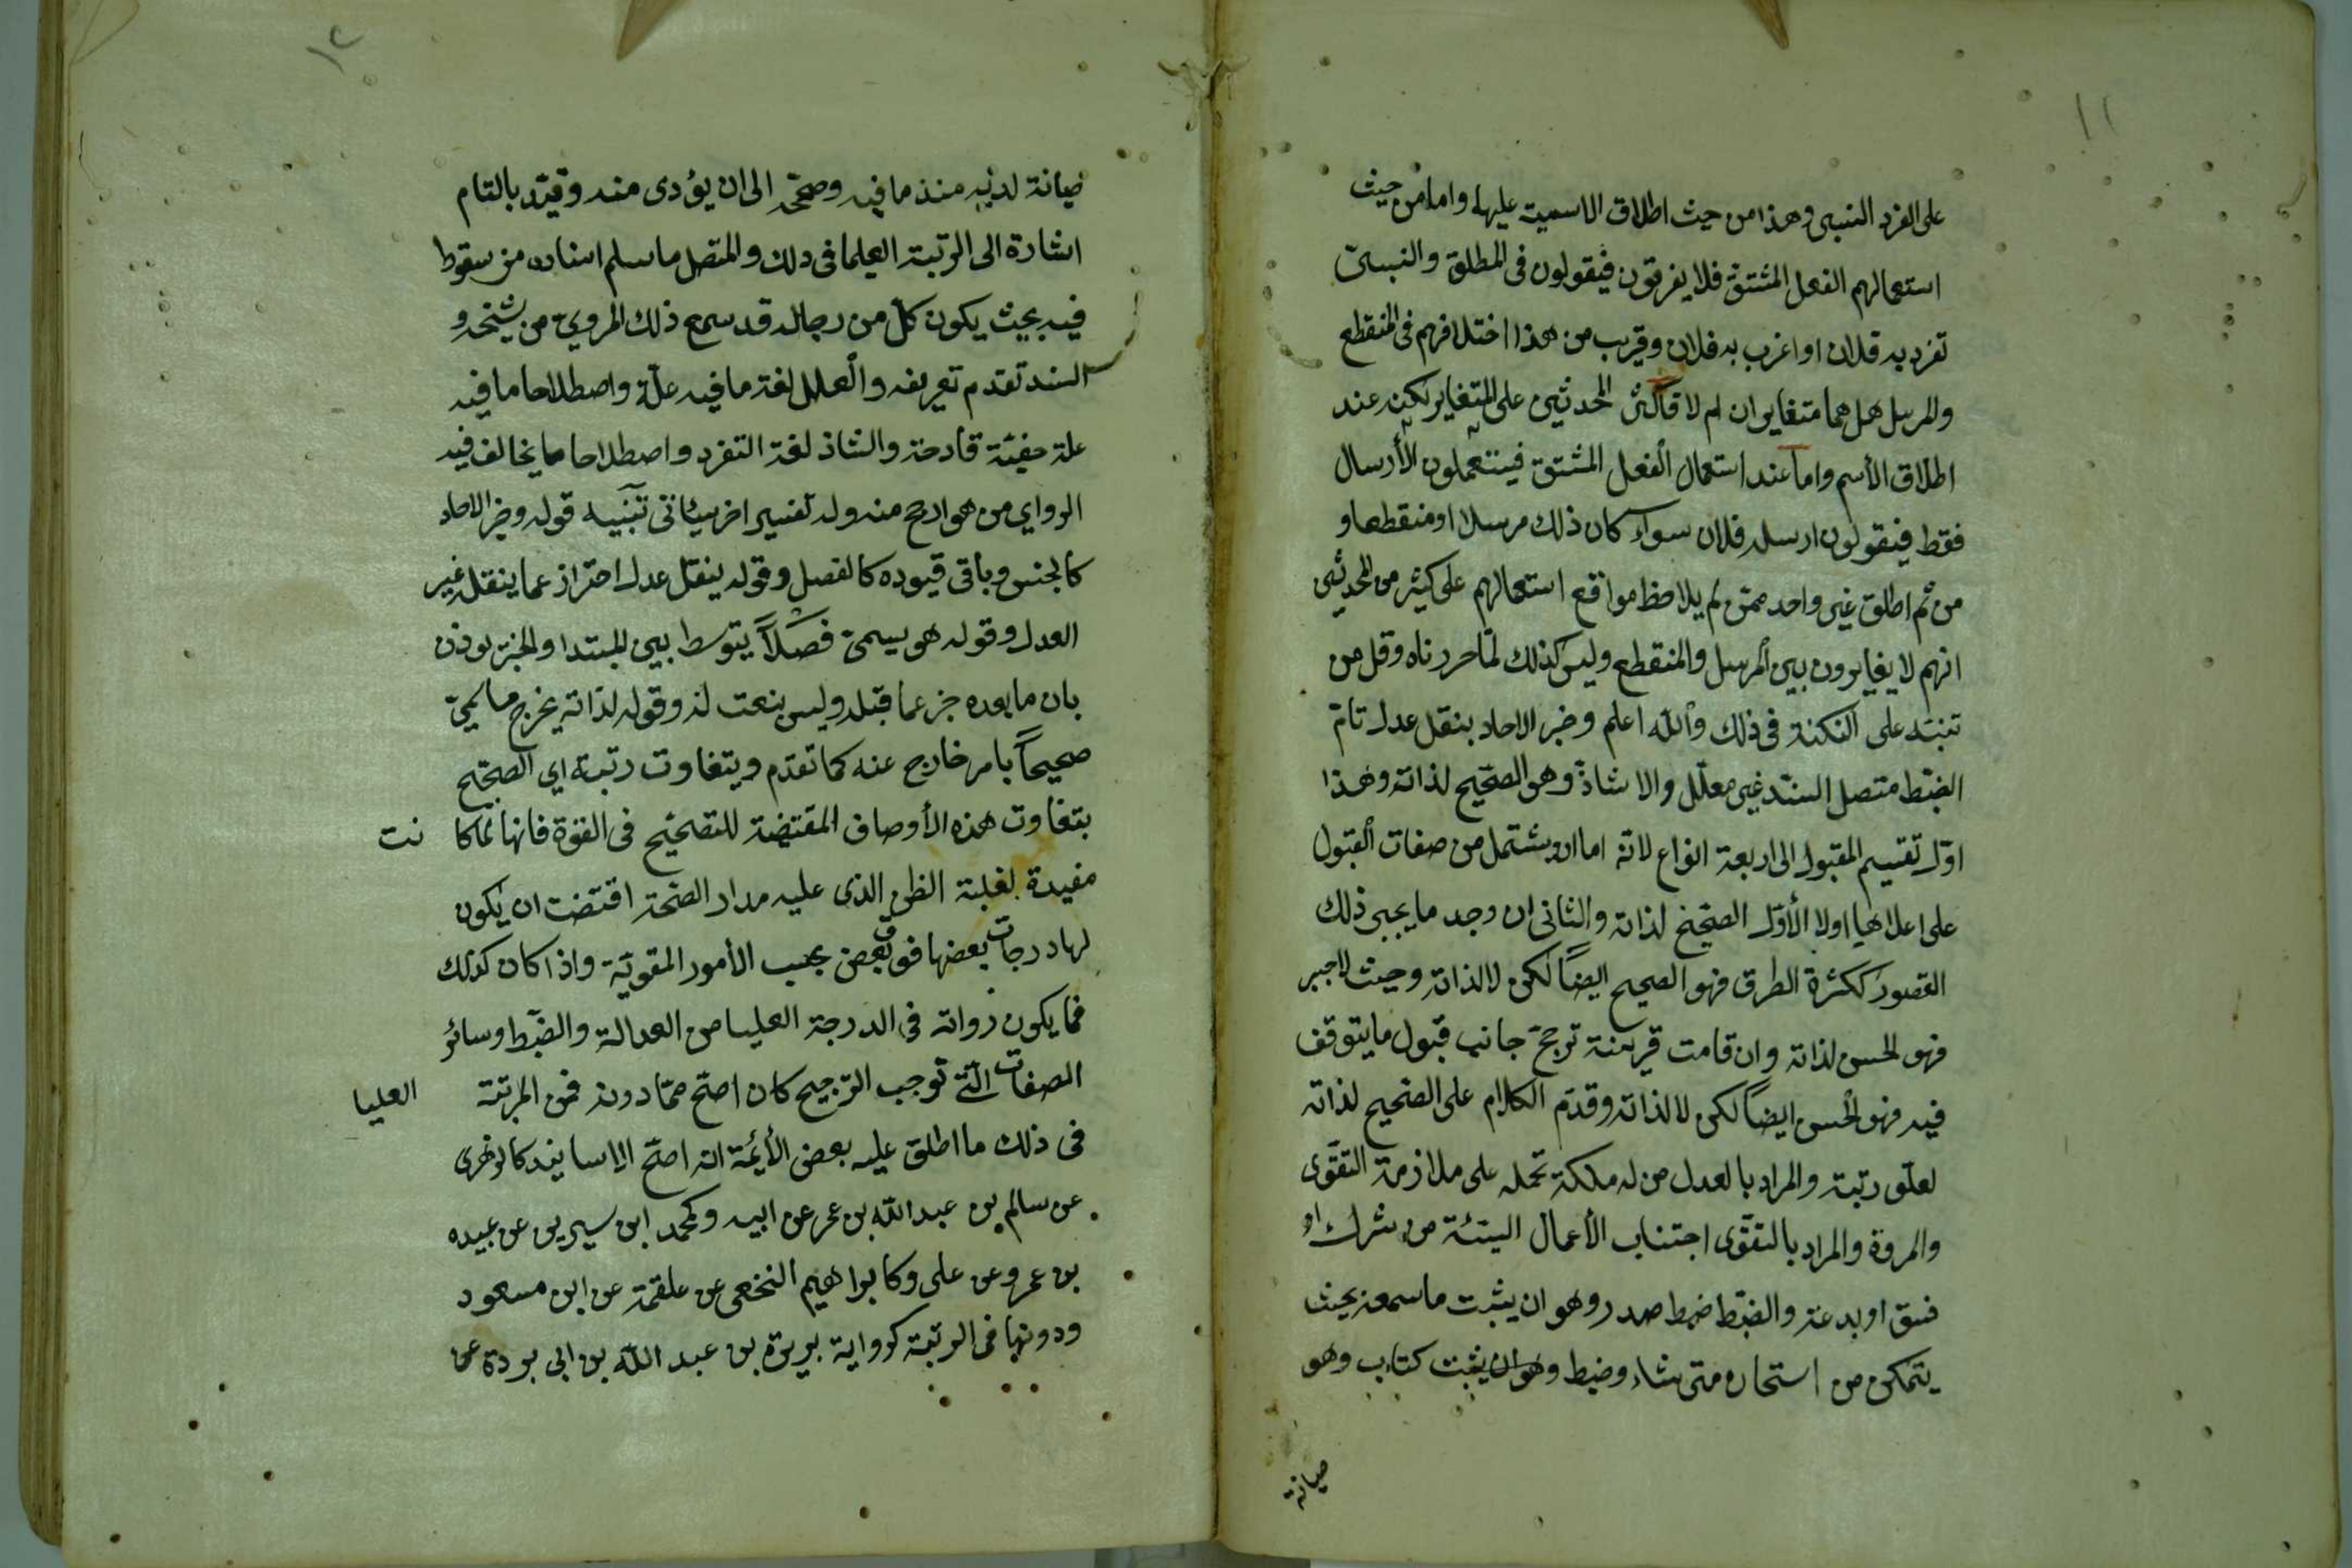 ١١
على الفرد النسبى وهذا من حيث اطلاق الاسمية عليها واما من حيث
استعمالهم الفعل المشتق فلا يفرقون فيقولون فى المطلق والنسبىّ
تفرد به فلان او اغرب به فلان وقريب من هذا اختلافهم فى المنقطع
والمرسل هل هما متغايران ام لا فأكثر المحدثين على المتغاير لكنه عند
اطلاق الأسم واما عند استعمال الفعل المشتق فيستعملون الأرسال
فقط فيقولون ارسله فلان سواء كان ذلك مرسلا او منقطعا و
من ثم اطلق غير واحد ممن لم يلاحظ مواقع استعمالهم على كثير من المحدثين
انهم لا يغايرون بين المرسل والمنقطع وليس كذلك لما حررناه وقل من
تنبه على النكتة فى ذلك والله اعلم وخبر الاحاد بنقل عدل تام
الضبط متصل السند غير معلل والا شاذ وهو الصحيح لذاته وهذا
اول تقسيم المقبول الى اربعة انواع لانه اما ان يشتمل من صفات القبول
على اعلاهيا اولا الأول الصحيح لذاته والثانى ان وجد ما يجبر ذلك
القصور ككثرة الطرق فهو الصحيح ايضاً لكن لا لذاته وحيث لا جبر
فهو الحسن لذاته وان قامت قرينة ترجح جانب قبول ما يتوقف
فيه فهو الحسن ايضاً لكن لا لذاته وقدم الكلام على الصحيح لذاته
لعلو رتبته والمراد بالعدل من له ملكة تحمله على ملازمة التقوى
والمروة والمراد بالتقوى اجتناب الأعمال السيئة من شرك او
فسق او بدعة والضبط ضبط صدر وهو ان يثبت ما سمعه بحيث
يتمكن من استحاره متى شاء وضبط وهو ان يثبت كتاب وهو
صيانة
١٢
صيانة لديه منذ ما فيه وصححه الى ان يؤدى منه وقيد بالتام
اشارة الى الرتبة العليا فى ذلك والمتصل ما سلم اسناده من سقوط
فيه بحيث يكون كل من رجاله قد سمع ذلك المروي من شيخه و
السند تقدم تعريفه والعلل لغة ما فيه علة واصطلاحا ما فيه
علة خفيّة قادحة والشاذ لغة التفرد واصطلاحا ما يخالف فيه
الرواي من هو ارجح منه وله تفسير اخر سياتى تنبيه قوله وخبر الاحاد
كالجنس وباقى قيوده كالفصل وقوله ينقل عدل احتراز عما ينقله غير
العدل وقوله هو يسمى فصلاً يتوسط بين المبتدا والخبر يوذن
بان ما بعده خبر عما قبله وليس بنعت له وقوله لذاته يخرج ما يسمى
صحيحاً بامر خارج عنه كما تقدم ويتفاوت رتبه اي الصحيح
بتفاوت هذه الأوصاف المقتضية للتصحيح فى القوة فانها لما كا نت
مفيدة لغلبة الظن الذى عليه مدار الصحة اقتضت ان يكون
لها درجات بعضها فوق بعض بحسب الأمور المقوية واذا كان كذلك
فما يكون رواته فى الدرجة العليا من العدالة والضبط وسائر
الصفات التى توجب الترجيح كان اصح مما دونه فمن المرتبة العليا
فى ذلك ما اطلق عليه بعض الأئمة انه اصح الاسانيد كالزهرى
عن سالم بن عبد الله بن عمر عن ابيه وكمحمد ابن سيرين عن عبيده
بن عمرو عن على وكابراهيم النخعى عن علقمة عن ابن مسعود
ودونها فى الرتبة كرواية بريدة بن عبد الله بن ابى بردة عن